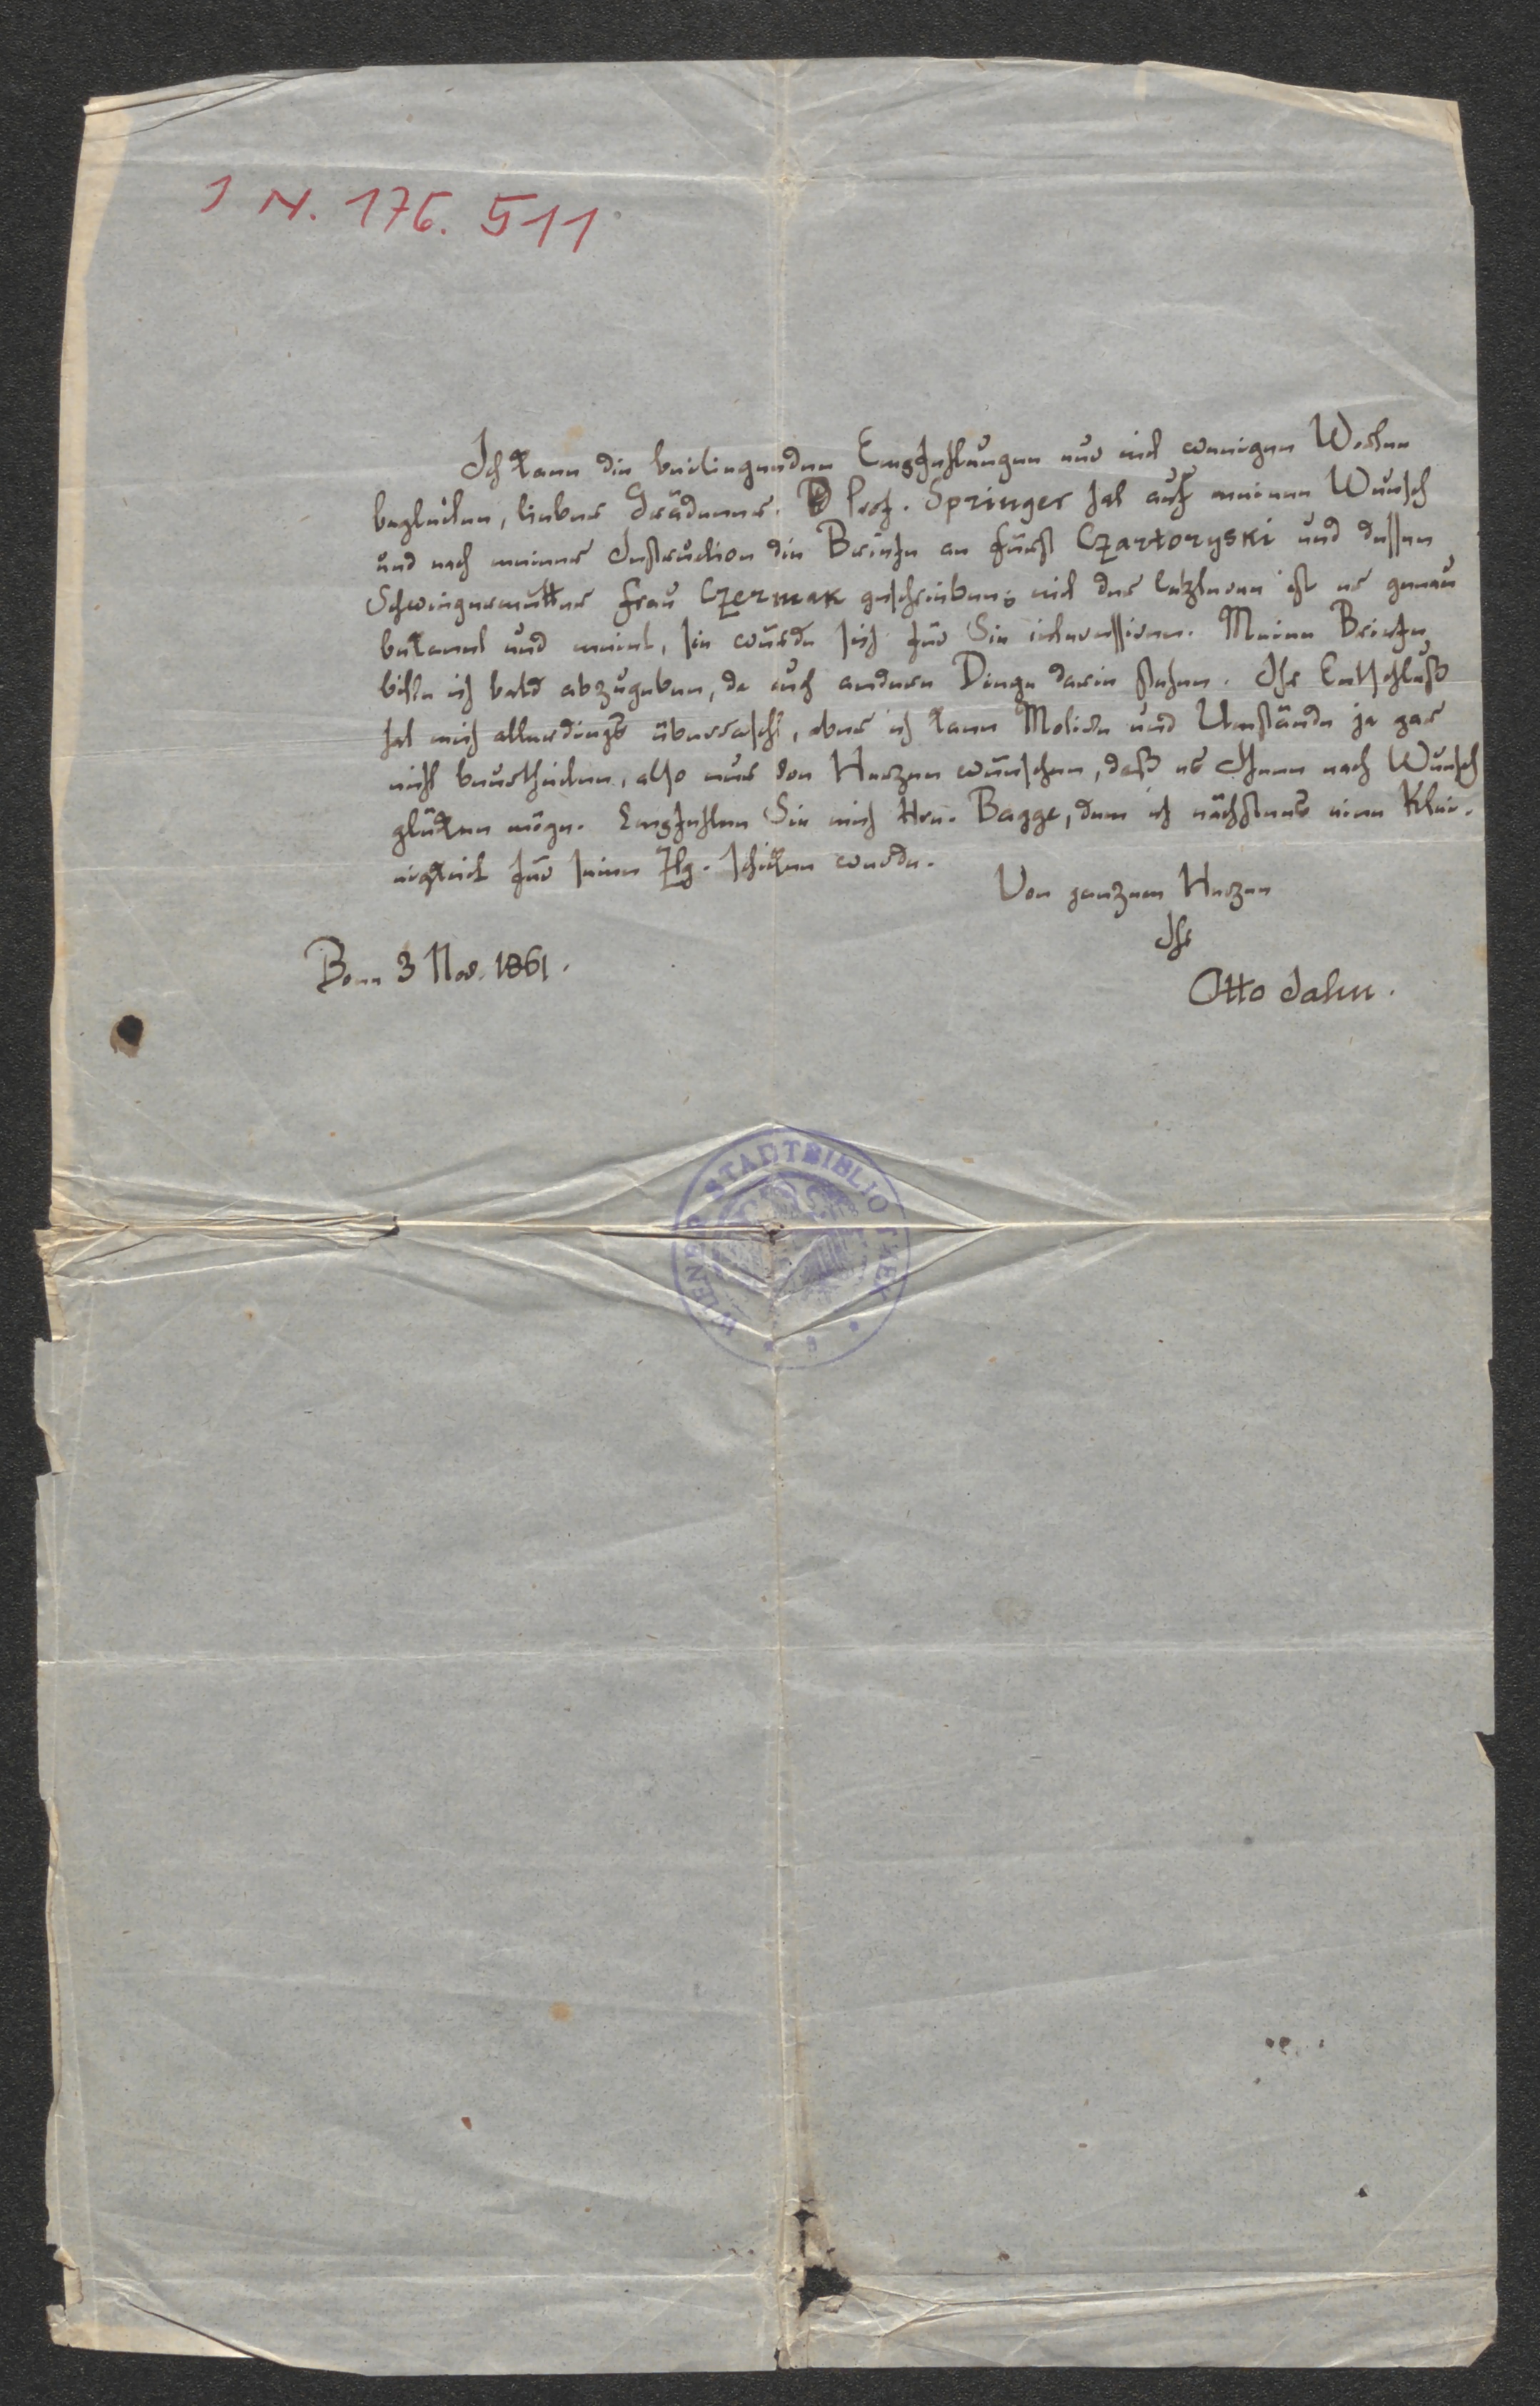 J N. 176.511
Ich kann die beiliegenden Empfehlungen nur mit wenigen Worten
begleiten, lieber Grädener. Prof. Springer hat auf meinen Wunsch
und nach meiner Instruction die Briefe an Fürst Czartoryski und dessen
Schwiegermutter Frau Czermak geschrieben; mit der letzteren ist er genau
bekannt und meint, sie würde sich für Sie interessiren. Meine Briefe
bitte ich bald abzugeben, da auch andere Dinge darin stehen. Ihr Entschluß
hat mich allerdings überrascht, aber ich kann Motive und Umstände ja gar
nicht beurtheilen, also nur von Herzen wünschen, daß es Ihnen nach Wunsch
glücken möge. Empfehlen Sie mich Hrn. Bagge, dem ich nächstens eine Klei-
nigkeit für seine Ztg. schicken werde.
Von ganzem Herzen
Ihr
Otto Jahn.
Bonn 3 Nov. 1861.
WIENER STADTBIBLIOTHEK